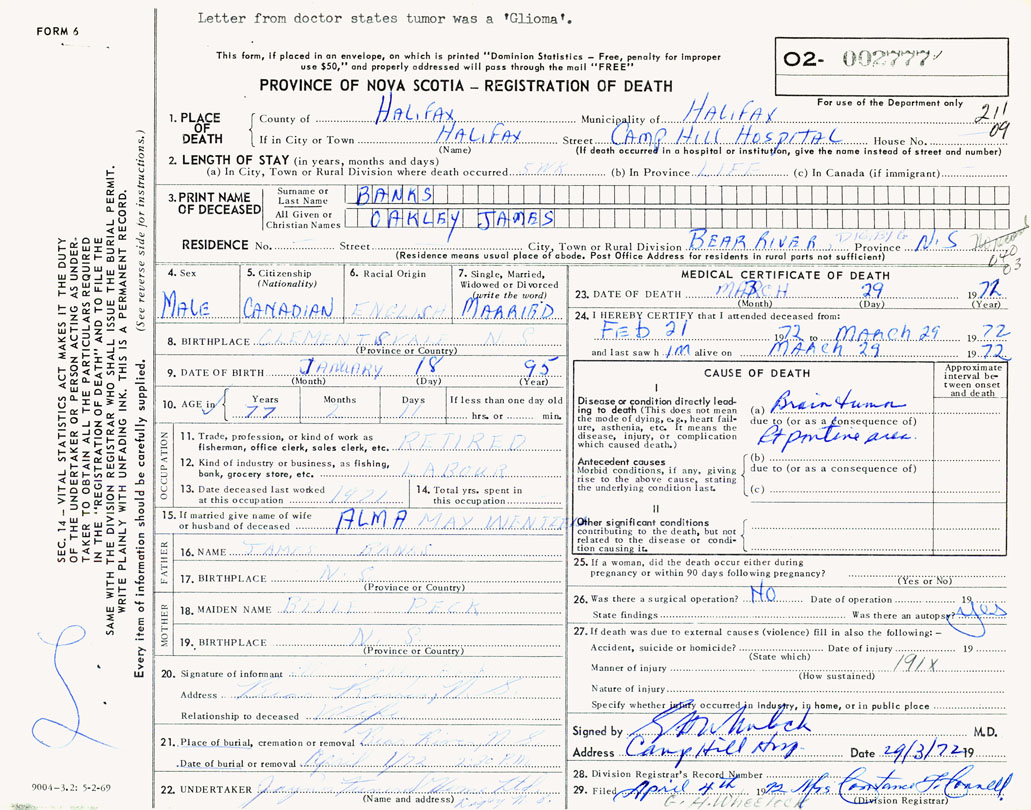 Letter from doctor states tumor was a 'Glioma'.
FORM 6
This form, if placed in an envelope, on which is printed "Dominion Statistics – Free, penalty for improper
use $50," and properly addressed will pass through the mail "FREE"
O2- 002777
PROVINCE OF NOVA SCOTIA – REGISTRATION OF DEATH
For use of the Department only
1. PLACE OF DEATH
County of HALIFAX Municipality of HALIFAX 211
If in City or Town HALIFAX Street CAMP HILL HOSPITAL House No. 09
(Name) (If death occurred in a hospital or institution, give the name instead of street and number)
2. LENGTH OF STAY (in years, months and days)
(a) In City, Town or Rural Division where death occurred 5WK (b) In Province LIFE (c) In Canada (if immigrant)
3. PRINT NAME OF DECEASED
Surname or Last Name BANKS
All Given or Christian Names OAKLEY JAMES
RESIDENCE No. Street City, Town or Rural Division BEAR RIVER, DIGBY Province N.S
(Residence means usual place of abode. Post Office Address for residents in rural parts not sufficient)
040
03
4. Sex
MALE
5. Citizenship (Nationality)
CANADIAN
6. Racial Origin
ENGLISH
7. Single, Married, Widowed or Divorced (write the word)
MARRIED
8. BIRTHPLACE CLEMENTSVALE N.S.
(Province or Country)
9. DATE OF BIRTH JANUARY 18 95
(Month) (Day) (Year)
10. AGE in Years Months Days If less than one day old
77 2 11 hrs. or min.
OCCUPATION
11. Trade, profession, or kind of work as fisherman, office clerk, sales clerk, etc. RETIRED
12. Kind of industry or business, as fishing, bank, grocery store, etc. LABOUR
13. Date deceased last worked at this occupation 1971
14. Total yrs. spent in this occupation
15. If married give name of wife or husband of deceased ALMA MAY
FATHER
16. NAME JAMES BANKS
17. BIRTHPLACE N.S.
(Province or Country)
MOTHER
18. MAIDEN NAME PECK
19. BIRTHPLACE N.S.
(Province or Country)
20. Signature of informant
Address Bear River, N.S.
Relationship to deceased Wife
21. Place of burial, cremation or removal Bear River N.S.
Date of burial or removal April 1/72
22. UNDERTAKER
(Name and address)
MEDICAL CERTIFICATE OF DEATH
23. DATE OF DEATH MARCH 3 29 1972
(Month) (Day) (Year)
24. I HEREBY CERTIFY that I attended deceased from:
FEB 21 1972 to MARCH 29 1972
and last saw h im alive on MARCH 29 1972
CAUSE OF DEATH
Approximate interval between onset and death
I
Disease or condition directly leading to death (This does not mean the mode of dying, e.g., heart failure, asthenia, etc. It means the disease, injury, or complication which caused death.)
(a) Brain tumor
due to (or as a consequence of)
Rt pontine area.
Antecedent causes
Morbid conditions, if any, giving rise to the above cause, stating the underlying condition last.
(b)
due to (or as a consequence of)
(c)
II
Other significant conditions
contributing to the death, but not related to the disease or condition causing it.
25. If a woman, did the death occur either during pregnancy or within 90 days following pregnancy?
(Yes or No)
26. Was there a surgical operation? NO Date of operation 19
State findings Was there an autopsy? Yes
27. If death was due to external causes (violence) fill in also the following: –
Accident, suicide or homicide? Date of injury 19
(State which)
Manner of injury 191X
(How sustained)
Nature of injury
Specify whether injury occurred in industry, in home, or in public place
Signed by M.D.
Address Camp Hill Hosp Date 29/3/72 19
28. Division Registrar's Record Number
29. Filed April 4th 1972 Mrs Constance
(Division Registrar)
G. A. WHEELOCK
SEC. 14 – VITAL STATISTICS ACT MAKES IT THE DUTY
OF THE UNDERTAKER OR PERSON ACTING AS UNDERTAKER
TO OBTAIN ALL THE PARTICULARS REQUIRED
IN THE "REGISTRATION OF DEATH" AND TO FILE THE
SAME WITH THE DIVISION REGISTRAR WHO SHALL ISSUE THE BURIAL PERMIT.
WRITE PLAINLY WITH UNFADING INK. THIS IS A PERMANENT RECORD.
Every item of information should be carefully supplied. (See reverse side for instructions.)
9004–3.2: 5-2-69